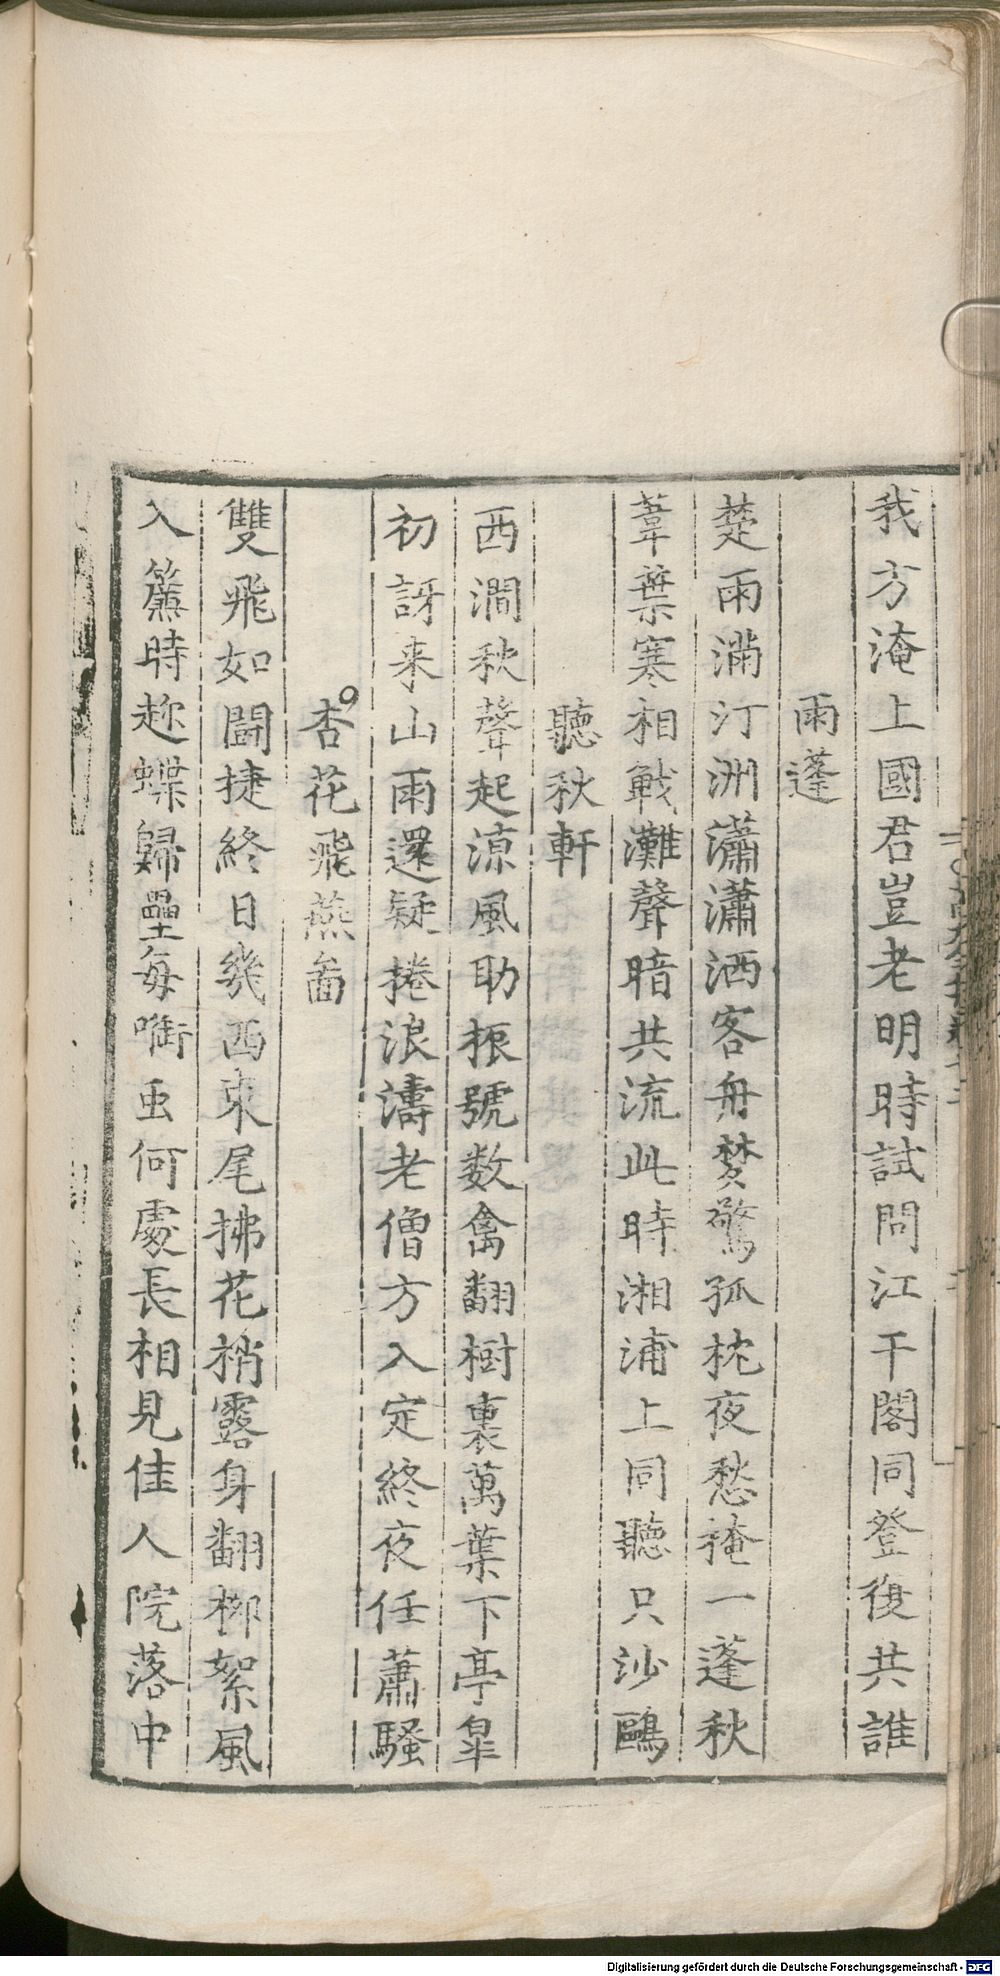 我方淹上國君豈老明時試問江干閣同登復共誰
雨蓬
楚雨滿汀洲瀟瀟洒客舟夢驚孤枕夜愁掩一蓬秋
葦葉寒相戰灘聲暗共流此時湘浦上同聽只沙鷗
聽秋軒
西澗秋聲起涼風助振號数禽翻樹裏萬葉下亭皐
初訝来山雨還疑捲浪濤老僧方入定終夜任蕭騷
杏花飛燕啚
雙飛如鬪捷終日幾西東尾拂花梢露身翻柳絮風
入簾時趂蝶歸壘每啣虫何處長相見佳人院落中
Digitalisierung gefördert durch die Deutsche Forschungsgemeinschaft - DFG